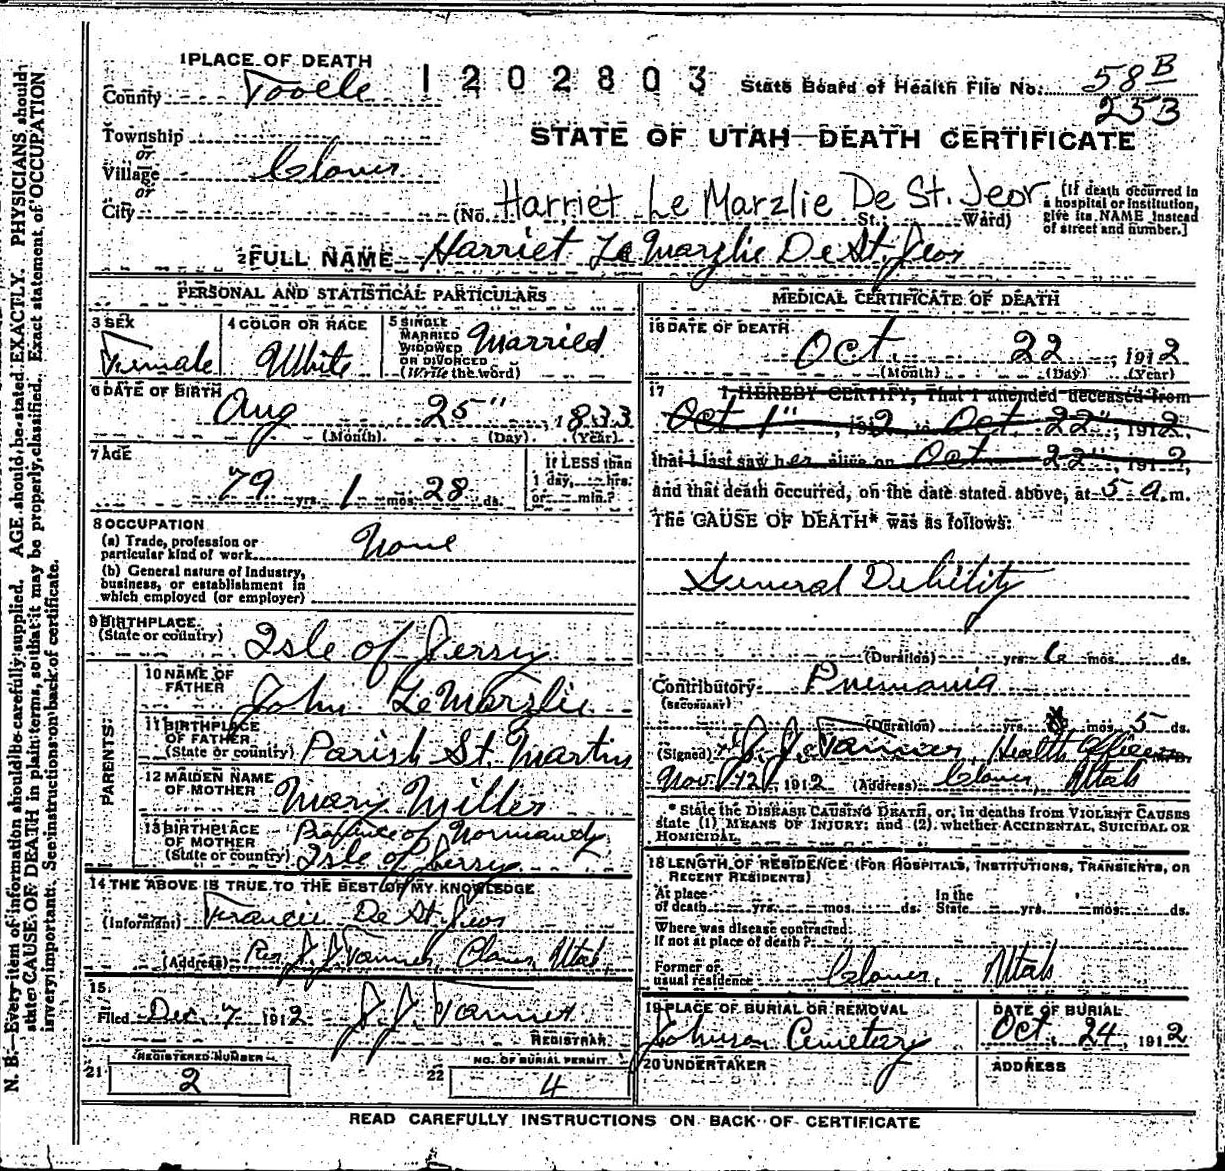 1 PLACE OF DEATH
County Tooele
1202803
State Board of Health File No. 58 B
253
Township
or
Village Clover
or
City
STATE OF UTAH—DEATH CERTIFICATE
(No. Harriet Le Marzlie De St. Jeor St.; Ward)
[If death occurred in
a hospital or institution,
give its NAME instead
of street and number.]
2 FULL NAME Harriet Le Marzlie De St. Jeor
PERSONAL AND STATISTICAL PARTICULARS
3 SEX
Female
4 COLOR OR RACE
White
5 SINGLE
MARRIED
WIDOWED
OR DIVORCED
(Write the word)
Married
6 DATE OF BIRTH
Aug 25", 1833
(Month) (Day) (Year)
7 AGE
79 yrs. 1 mos. 28 ds.
If LESS than
1 day, hrs.
or min.?
8 OCCUPATION
(a) Trade, profession or
particular kind of work None
(b) General nature of Industry,
business, or establishment in
which employed (or employer)
9 BIRTHPLACE
(State or country) Isle of Jersy
PARENTS
10 NAME OF
FATHER John LeMarzlie
11 BIRTHPLACE
OF FATHER
(State or country) Parish St. Martin
12 MAIDEN NAME
OF MOTHER Mary Miller
13 BIRTHPLACE
OF MOTHER
(State or country)
Province of Normandy
Isle of Jersy
14 THE ABOVE IS TRUE TO THE BEST OF MY KNOWLEDGE
(Informant) Francis De St. Jeor
(Address) Per J. J. Vannes, Clover, Utah
15
Filed Dec. 7 1912 J. J. Vannes
REGISTRAR
REGISTERED NUMBER
21 2
NO. OF BURIAL PERMIT
22 4
MEDICAL CERTIFICATE OF DEATH
16 DATE OF DEATH
Oct. 22, 1912
(Month) (Day) (Year)
17 I HEREBY CERTIFY, That I attended deceased from
Oct 1", 1912, to Oct. 22", 1912,
that I last saw her alive on Oct 22", 1912,
and that death occurred, on the date stated above, at 5 a. m.
The CAUSE OF DEATH* was as follows:
General Debility
(Duration) yrs. 6 mos. ds.
Contributory Pnemonia
(SECONDARY)
(Duration) yrs. mos. 5 ds.
(Signed) J. J. Vannes, Health Officer
Nov. 12, 1912 (Address) Clover Utah
* State the DISEASE CAUSING DEATH, or, in deaths from VIOLENT CAUSES
state (1) MEANS OF INJURY; and (2) whether ACCIDENTAL, SUICIDAL OR
HOMICIDAL.
18 LENGTH OF RESIDENCE (FOR HOSPITALS, INSTITUTIONS, TRANSIENTS, OR
RECENT RESIDENTS)
At place
of death yrs. mos. ds.
In the
State yrs. mos. ds.
Where was disease contracted
if not at place of death?
Former or
usual residence Clover, Utah
19 PLACE OF BURIAL OR REMOVAL
Johnson Cemetery
DATE OF BURIAL
Oct. 24, 1912
20 UNDERTAKER
ADDRESS
READ CAREFULLY INSTRUCTIONS ON BACK OF CERTIFICATE
N. B.—Every item of information should be carefully supplied. AGE should be stated EXACTLY. PHYSICIANS should
state CAUSE OF DEATH in plain terms, so that it may be properly classified. Exact statement of OCCUPATION
is very important. See instructions on back of certificate.